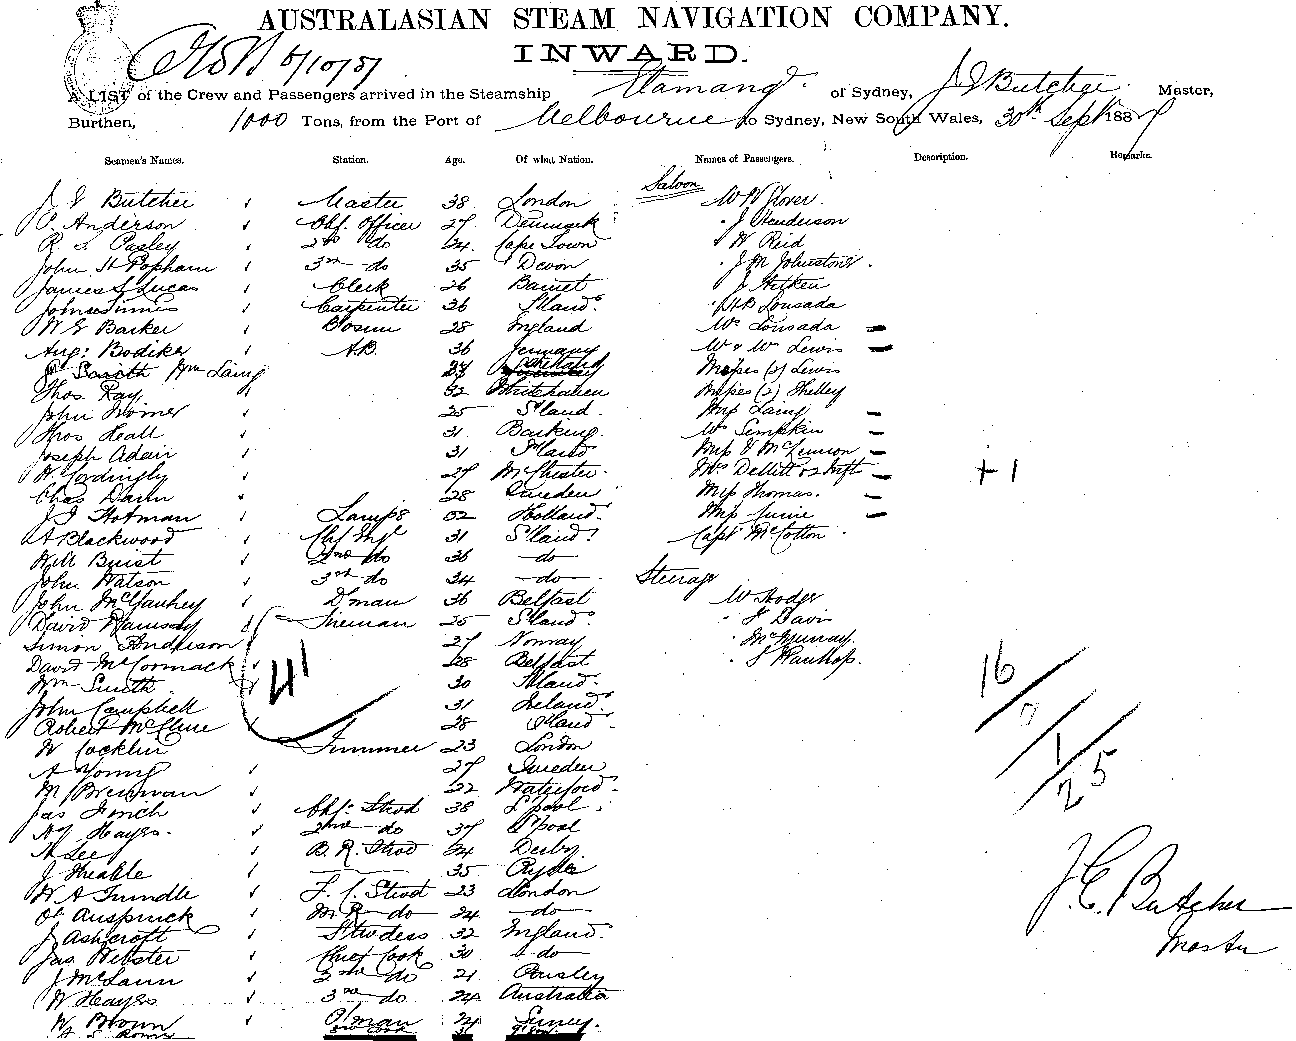 AUSTRALASIAN STEAM NAVIGATION COMPANY.
INWARD.
5/10/87
A LIST of the Crew and Passengers arrived in the Steamship of Sydney, J E Butcher Master,
Burthen, 1000 Tons, from the Port of Melbourne to Sydney, New South Wales, 30th Sept 1887
Seamen's Names. Station. Age. Of what Nation. Names of Passengers. Description. Remarks.
Saloon
J E Butcher Master 38 London W W Glover
Anderson Chf. Officer 27 Denmark J Henderson
R S Pasley 2nd do 24 Cape Town W Reid
John H Popham 3rd do 35 Devon J M Johnstone
James S Lucas Clerk 26 Barnet J Aitken
John Carpenter 36 S'land Lousada
W E Barker Bosun 28 England Mrs Lousada
Aug: Bodiker A.B. 36 Germany Mr & Mrs Lewis
Smith Wm Laing Misses (2) Lewis
Thos Ray 32 Whitehaven Misses (2) Shelley
John 25 S'land Miss Laing
Thos Heall 31 Barking Mrs Simpkin
Joseph Adair 31 S'land Miss
H Cordingly 27 McChester Mrs & Inft
Chas Dann 28 Sweden Miss Thomas
+ 1
J J Hofman Lamps 32 Holland Miss
A Blackwood Chf Engr 31 S'land Capt McCotton
Will Buist 2nd do 36 do
John Watson 3rd do 34 do
Steerage
John McGaughey D'man 36 Belfast W Hodge
David Ramsay Fireman 25 S'land J Davis
Simon Anderson 27 Norway McMurray
David McCormack 28 Belfast S
Wm Smith 30 S'land
41
John Campbell 31 Ireland
Robert McClure 28 S'land
W Cocklin Trimmer 23 London
A Young 27 Sweden
M Brennan 22 Waterford
16/
1/
25
Jas Chf. Stwd 38 L'pool
Hy Hayes 2nd do 37 L'pool
H Lee B. R. Stwd 24 Derby
J Heable 35 Ryde
W A Trundle F. C. Stwd 23 London
Auspruck M. R. do 24 do
J Ashcroft Stwdess 32 England
Jas Webster Chief Cook 30 do
J McCann 2nd do 21 Paisley
W Hayes 3rd do 24 Australia
W Brown P'man 24 Surrey
J. E. Butcher
Master